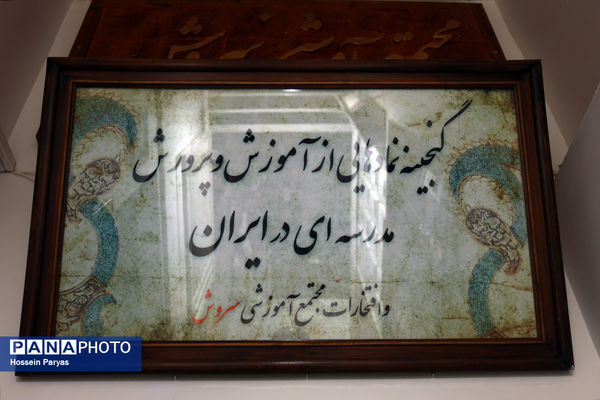 مجتمع آموزشی سروش
گنجینه نمادهایی از آموزش و پرورش
مدرسه ای در ایران
و افتخارات مجتمع آموزشی سروش
PANAPHOTO
Hossein Paryas